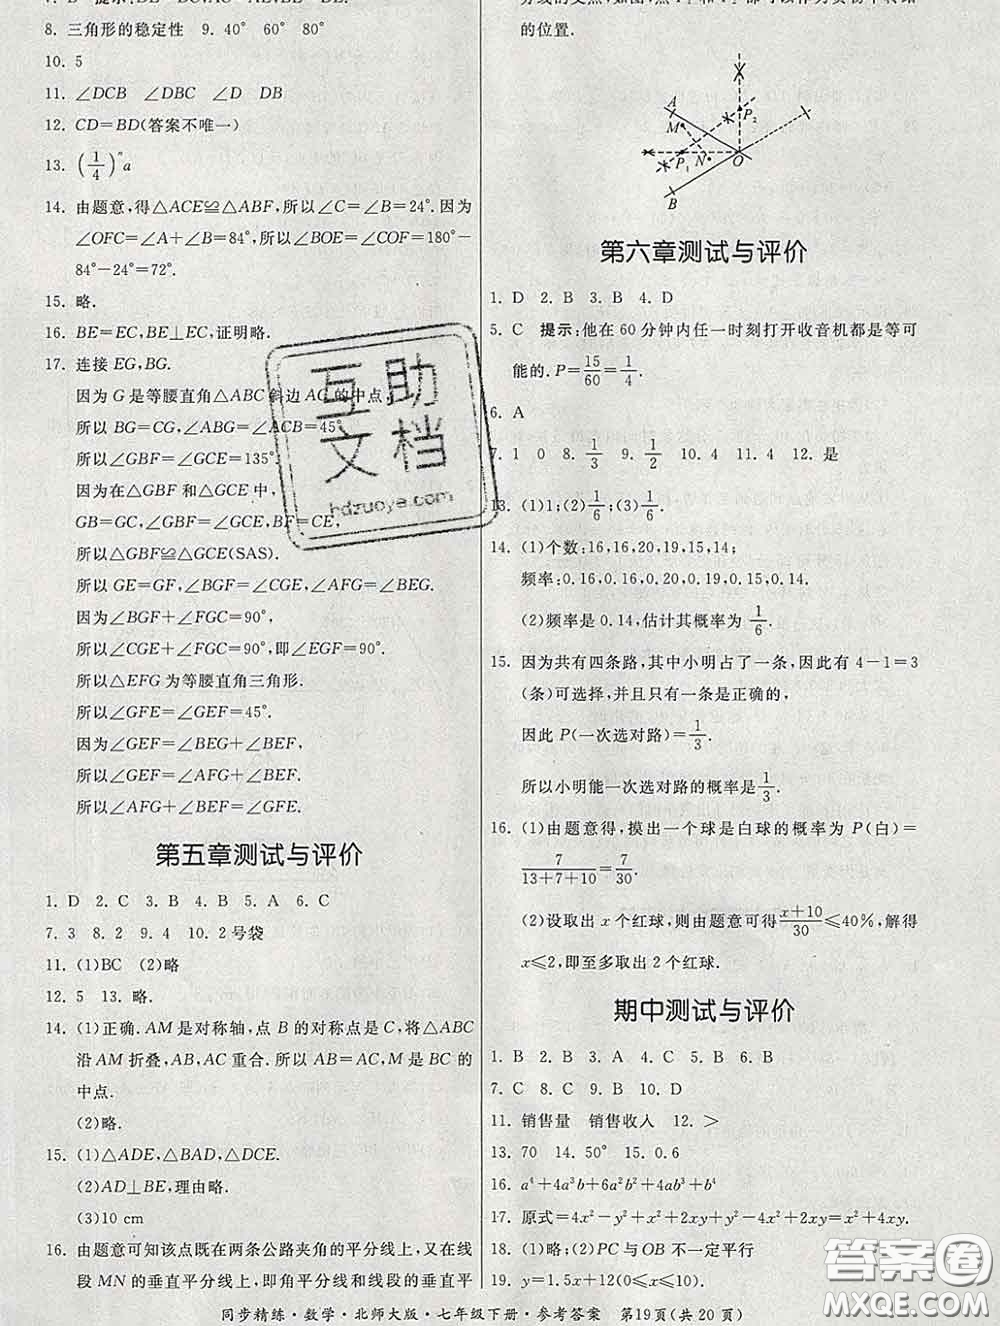 8. 三角形的稳定性 9. 40° 60° 80°
10. 5
11. ∠DCB ∠DBC ∠D DB
12. CD=BD(答案不唯一)
13. (1/4)ⁿa
14. 由题意,得△ACE≌△ABF,所以∠C=∠B=24°.因为
∠OFC=∠A+∠B=84°,所以∠BOE=∠COF=180°-
84°-24°=72°.
15. 略.
16. BE=EC,BE⊥EC,证明略.
17. 连接 EG,BG.
因为 G 是等腰直角△ABC 斜边 AC 的中点,
所以 BG=CG,∠ABG=∠ACB=45°.
所以∠GBF=∠GCE=135°.
因为在△GBF 和△GCE 中,
GB=GC,∠GBF=∠GCE,BF=CE,
所以△GBF≌△GCE(SAS).
所以 GE=GF,∠BGF=∠CGE,∠AFG=∠BEG.
因为∠BGF+∠FGC=90°,
所以∠CGE+∠FGC=90°,即∠EGF=90°.
所以△EFG 为等腰直角三角形.
所以∠GFE=∠GEF=45°.
因为∠GEF=∠BEG+∠BEF,
所以∠GEF=∠AFG+∠BEF.
所以∠AFG+∠BEF=∠GFE.
第五章测试与评价
1. D 2. C 3. B 4. B 5. A 6. C
7. 3 8. 2 9. 4 10. 2 号袋
11. (1)BC (2)略
12. 5 13. 略.
14. (1)正确. AM 是对称轴,点 B 的对称点是 C,将△ABC
沿 AM 折叠,AB,AC 重合.所以 AB=AC,M 是 BC 的
中点.
(2)略.
15. (1)△ADE,△BAD,△DCE.
(2)AD⊥BE,理由略.
(3)10 cm
16. 由题意可知该点既在两条公路夹角的平分线上,又在线
段 MN 的垂直平分线上,即角平分线与线段的垂直平
的位置.
A
M
P₂
P₁
N
O
B
第六章测试与评价
1. D 2. B 3. B 4. D
5. C 提示:他在 60 分钟内任一时刻打开收音机都是等可
能的. P=15/60=1/4.
6. A
7. 1 0 8. 1/3 9. 1/2 10. 4 11. 4 12. 是
13. (1)1;(2)1/6;(3)1/6.
14. (1)个数:16,16,20,19,15,14;
频率:0.16,0.16,0.20,0.19,0.15,0.14.
(2)频率是 0.14,估计其概率为 1/6.
15. 因为共有四条路,其中小明占了一条,因此有 4-1=3
(条)可选择,并且只有一条是正确的,
因此 P(一次选对路)=1/3.
所以小明能一次选对路的概率是1/3.
16. (1)由题意得,摸出一个球是白球的概率为 P(白)=
7/(13+7+10)=7/30.
(2)设取出 x 个红球,则由题意可得(x+10)/30≤40%,解得
x≤2,即至多取出 2 个红球.
期中测试与评价
1. B 2. B 3. A 4. C 5. B 6. B
7. C 8. C 9. B 10. D
11. 销售量 销售收入 12. >
13. 70 14. 50° 15. 0.6
16. a⁴+4a³b+6a²b²+4ab³+b⁴
17. 原式=4x²-y²+x²+2xy+y²-4x²+2xy=x²+4xy.
18. (1)略;(2)PC 与 OB 不一定平行
19. y=1.5x+12(0≤x≤
同步精练·数学·北师大版·七年级下册·参考答案 第19页(共 20 页)
互助
文档
hdzuoye.com
答案圈
MXQE.COM